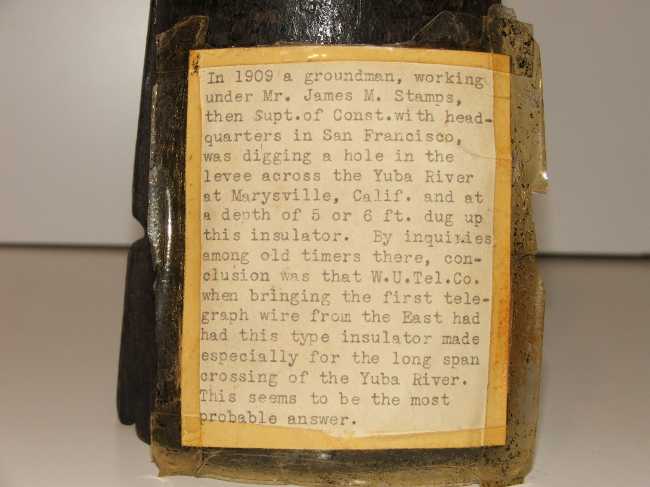 In 1909 a groundman, working
under Mr. James M. Stamps,
then Supt.of Const.with head-
quarters in San Francisco,
was digging a hole in the
levee across the Yuba River
at Marysville, Calif. and at
a depth of 5 or 6 ft. dug up
this insulator.  By inquiries
among old timers there, con-
clusion was that W.U.Tel.Co.
when bringing the first tele-
graph wire from the East had
had this type insulator made
especially for the long span
crossing of the Yuba River.
This seems to be the most
probable answer.